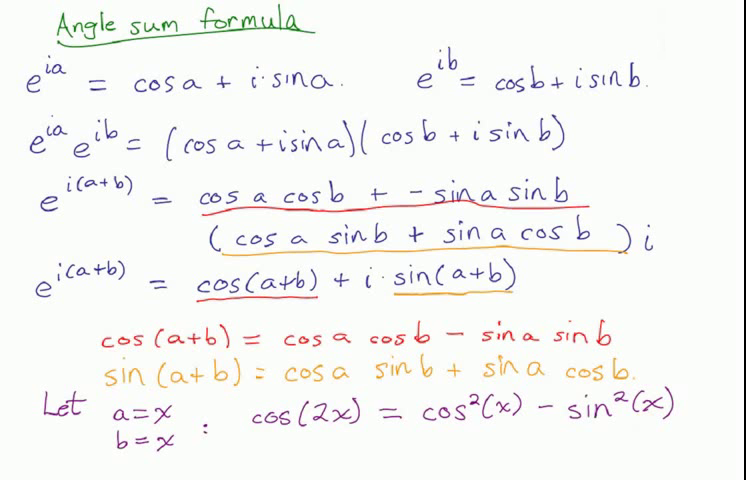 Angle sum formula
e^{ia} = cos a + i · sin a. e^{ib} = cos b + i sin b.
e^{ia} e^{ib} = (cos a + i sin a)(cos b + i sin b)
e^{i(a+b)} = cos a cos b + - sin a sin b
(cos a sin b + sin a cos b) i
e^{i(a+b)} = cos(a+b) + i · sin(a+b)
cos (a+b) = cos a cos b - sin a sin b
sin (a+b) = cos a sin b + sin a cos b.
Let a = x : cos(2x) = cos²(x) - sin²(x)
b = x